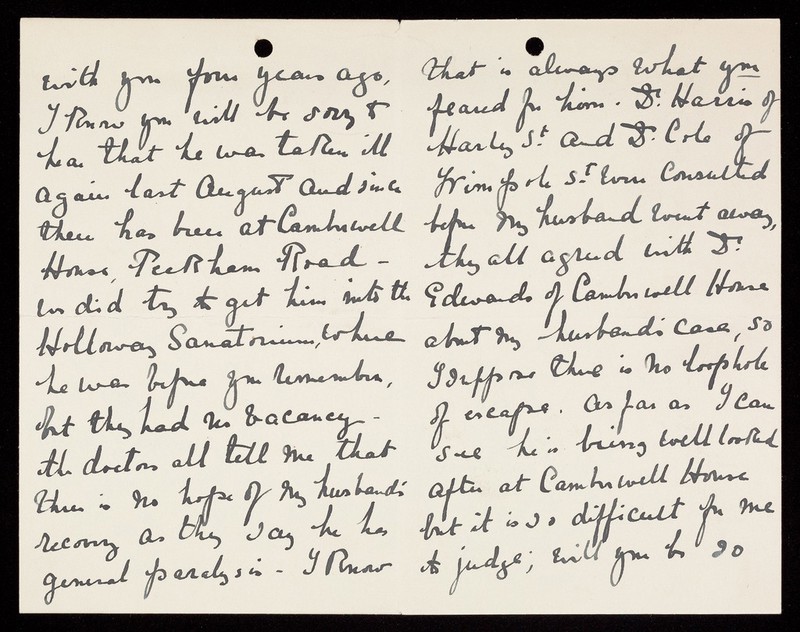 with you four years ago,
I know you will be sorry to
hear that he was taken ill
again last August and since
then has been at Camberwell
House, Peckham Road -
we did try to get him into the
Holloway Sanatorium, where
he was before you remember,
but they had no vacancy -
the doctors all tell me that
there is no hope of my husband's
recovery as they say he has
general paralysis - I know
that is always what you
feared for him. Dr. Harris of
Harley St. and Dr. Cole of
Wimpole St. were consulted
before my husband went away,
they all agreed with Dr.
Edwards of Camberwell House
about my husband's case, so
I suppose there is no loophole
of escape. As far as I can
see he is being well looked
after at Camberwell House
but it is so difficult for me
to judge; will you be so